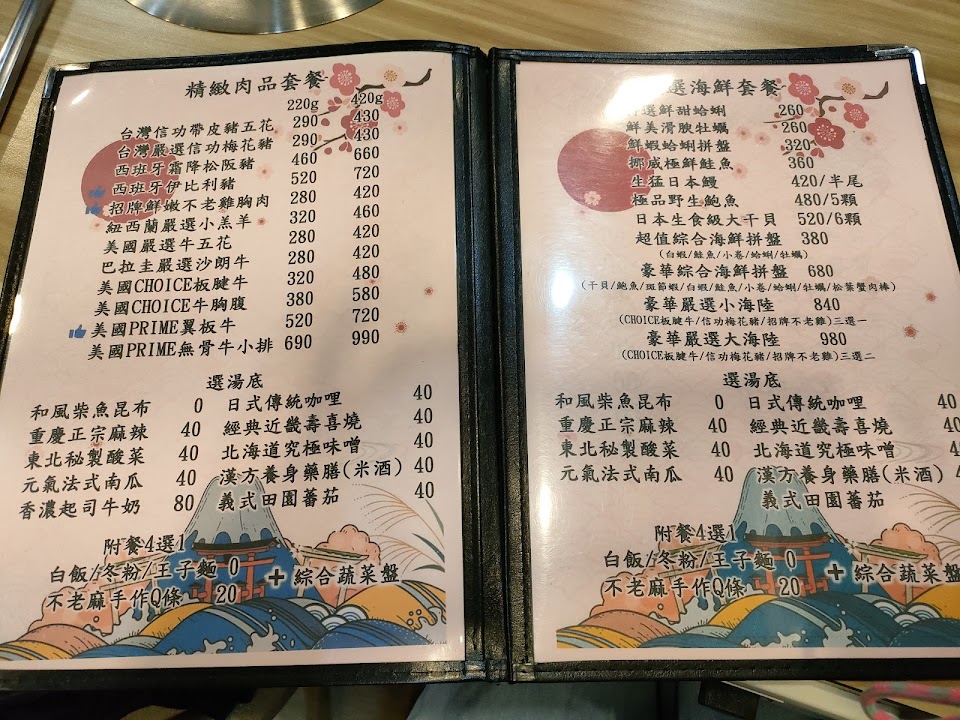 精緻肉品套餐
220g 420g
台灣信功帶皮豬五花 290 430
台灣嚴選信功梅花豬 290 430
西班牙霜降松阪豬 460 660
西班牙伊比利豬 520 720
招牌鮮嫩不老雞胸肉 280 420
紐西蘭嚴選小羔羊 320 460
美國嚴選牛五花 280 420
巴拉圭嚴選沙朗牛 280 420
美國CHOICE板腱牛 320 480
美國CHOICE牛胸腹 380 580
美國PRIME翼板牛 520 720
美國PRIME無骨牛小排 690 990
選湯底
和風柴魚昆布 0 日式傳統咖哩 40
重慶正宗麻辣 40 經典近畿壽喜燒 40
東北秘製酸菜 40 北海道究極味噌 40
元氣法式南瓜 40 漢方養身藥膳(米酒) 40
香濃起司牛奶 80 義式田園蕃茄 40
附餐4選1
白飯/冬粉/王子麵 0
不老麻手作Q條 20
+綜合蔬菜盤
選海鮮套餐
選鮮甜蛤蜊 260
鮮美滑腴牡蠣 260
鮮蝦蛤蜊拼盤 320
挪威極鮮鮭魚 360
生猛日本鰻 420/半尾
極品野生鮑魚 480/5顆
日本生食級大干貝 520/6顆
超值綜合海鮮拼盤 380
(白蝦/鮭魚/小卷/蛤蜊/牡蠣)
豪華綜合海鮮拼盤 680
(干貝/鮑魚/斑節蝦/白蝦/鮭魚/小卷/蛤蜊/牡蠣/松葉蟹肉棒)
豪華嚴選小海陸 840
(CHOICE板腱牛/信功梅花豬/招牌不老雞)三選一
豪華嚴選大海陸 980
(CHOICE板腱牛/信功梅花豬/招牌不老雞)三選二
選湯底
和風柴魚昆布 0 日式傳統咖哩 40
重慶正宗麻辣 40 經典近畿壽喜燒 40
東北秘製酸菜 40 北海道究極味噌
元氣法式南瓜 40 漢方養身藥膳(米酒)
義式田園蕃茄
附餐4選1
白飯/冬粉/王子麵 0
不老麻手作Q條 20
+綜合蔬菜盤